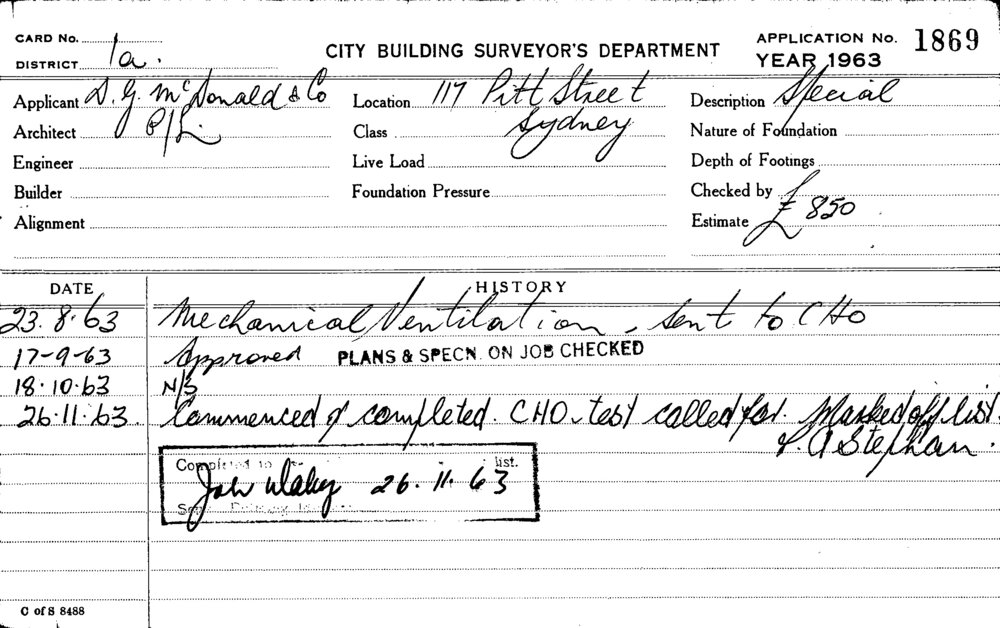 CARD No.
DISTRICT 1a.
CITY BUILDING SURVEYOR'S DEPARTMENT
APPLICATION No. 1869
YEAR 1963
Applicant D. G. McDonald & Co P/L.
Location 117 Pitt Street Sydney
Description Special
Architect
Class
Nature of Foundation
Engineer
Live Load
Depth of Footings
Builder
Foundation Pressure
Checked by
Alignment
Estimate £ 850
DATE HISTORY
23.8.63 Mechanical Ventilation - Sent to CHO
17-9-63 Approved PLANS & SPECN. ON JOB CHECKED
18.10.63 N/S
26.11.63. Commenced & completed. CHO. test called for. Marked off list.
Stephan.
Completed to list.
26.11.63
C of S 8488